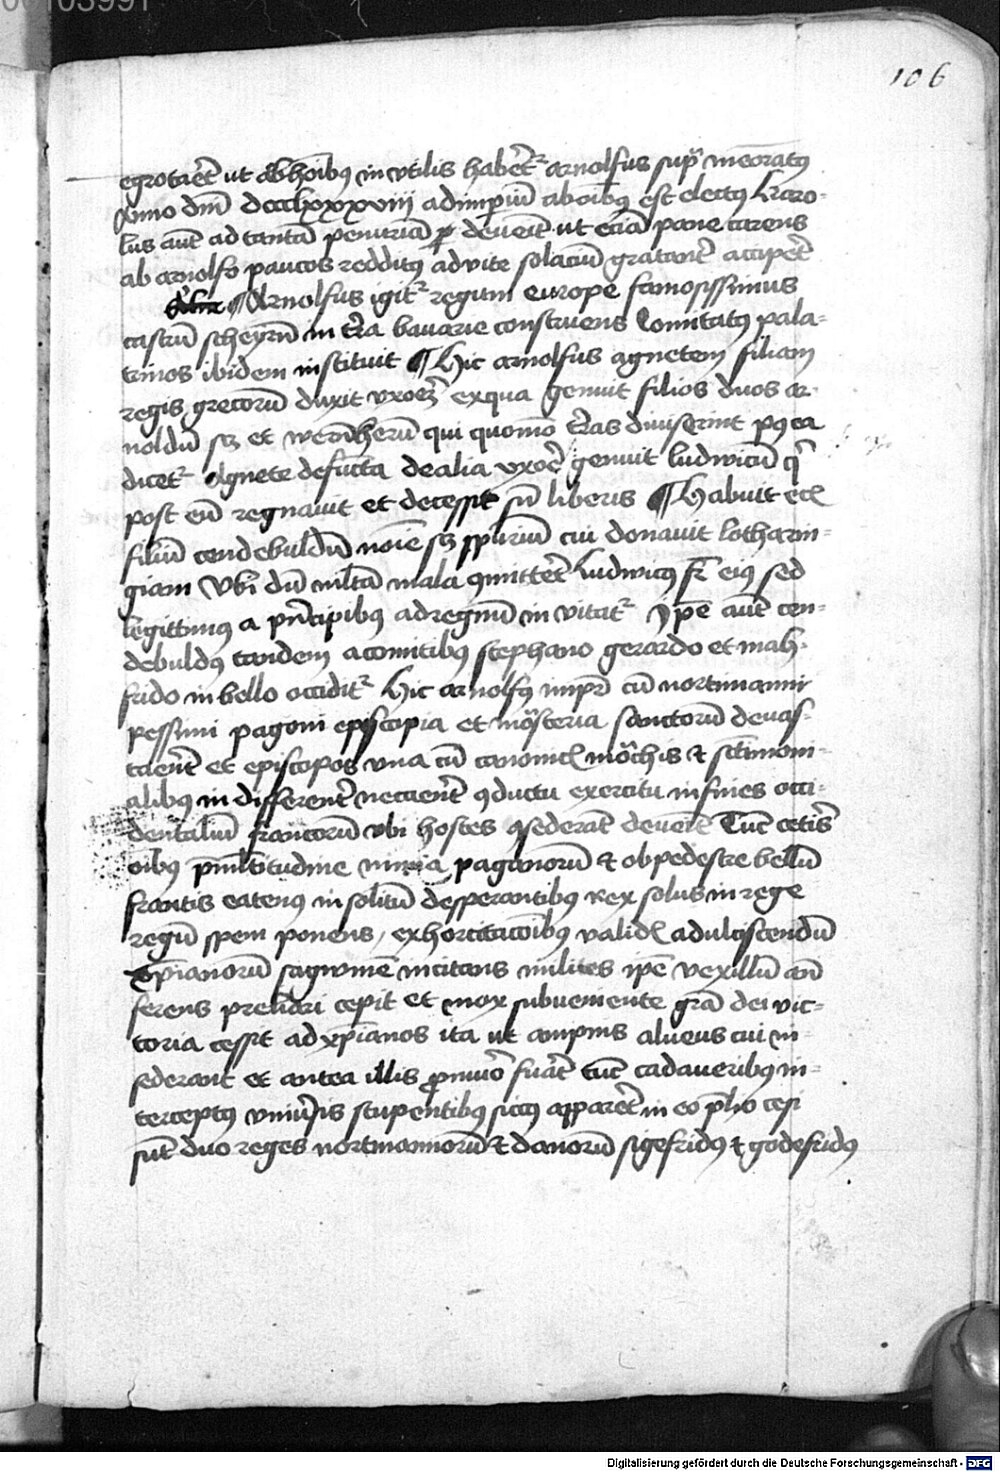 00103991
106
egrotaret ut ab hoibus in utilis haberetr arnolfus supra meoratus
Anno dni dccclxxxviii ad imperiu ab oibus est electus Karo-
lus aut ad tanta penuria devenit ut ecia pane carens
ab arnolfo paucos redditus ad vite solaciu gratanter acciperet
¶ Arnolfus igitr regum europe famosissimus
castru scheyrn in terra bavarie construens Comitatus pala-
tinos ibidem instituit ¶ Hic arnolfus agnetem filiam
regis grecoru duxit uxorem ex qua genuit filios duos ar-
noldu scz et wernheru qui quomo terras diviserint postea
dicetr Agnete defuncta de alia uxore genuit ludwicu qui
post eu regnavit et decessit sn liberis ¶ Habuit ecia
filiu cendebuldu noie scz spuriu cui donavit lotharin-
giam Ubi du multa mala committeret Ludwicus fr eius sed
legittimus a principibus ad regnu invitatr ipe aut cen-
debuldus tandem a comitibus stephano gerardo et mah-
frido in bello occiditr Hic arnolfus impr cu nortmanni
pessimi pagani episcopia et mosteria sanctoru devas-
tarent et episcopos una cu canonicis monachis et sctimoni-
alibus indifferenter necarent conductu exercitu in fines occi-
dentaliu francoru ubi hostes consederant devenit Tuc ceteris
oibus pre multitudine nimia paganoru et ob pedestre bellu
francis eatenus insolitu desperantibus rex solus in rege
regu spem ponens, exhortacoibus validis ad ulciscendu
xpianoru sagwine incitans milites ipe vexillu an
ferens preliari cepit et mox subveniente gra dei vic-
toria cessit ad xpianos ita ut ampnis alveus cui in-
sederant et antea illis pro muro fuerat tuc cadaveribus in-
terceptus universis stupentibus siccus appareret in eo prelio cesi
sut duo reges nortmannoru et danoru sigefridus et godefridus
Digitalisierung gefördert durch die Deutsche Forschungsgemeinschaft - DFG